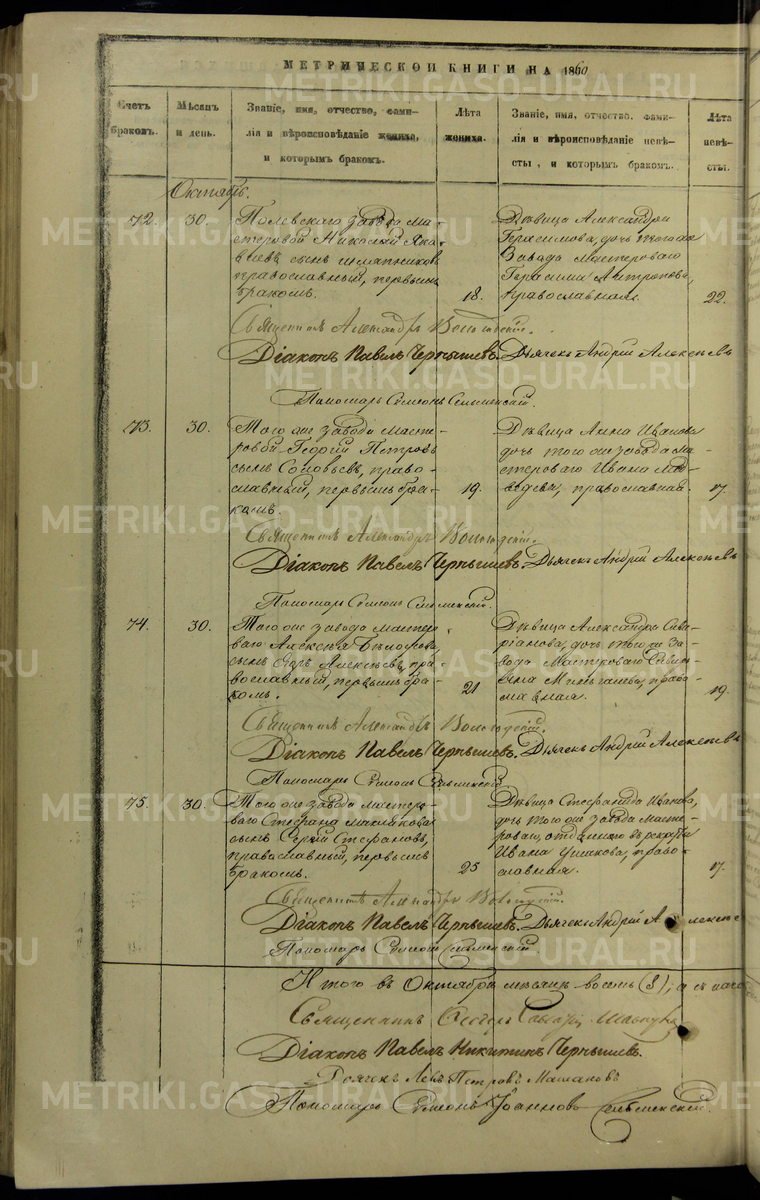 МЕТРИЧЕСКОЙ КНИГИ НА 1860
Счетъ браковъ.
Мѣсяцъ и день.
Званіе, имя, отчество, фами-
лія и вѣроисповѣданіе жениха,
и которымъ бракомъ.
Лѣта жениха.
Званіе, имя, отчество, фами-
лія и вѣроисповѣданіе невѣ-
сты, и которымъ бракомъ.
Лѣта невѣ-
сты.
Октябрь.
72. 30.
Полевскаго завода ма-
стеровой Николай Яко-
влевъ сынъ
православный, первымъ
бракомъ.
18.
Дѣвица Александра
Герасимова, дочь того же
завода мастероваго
Герасима Антропова,
православная.
22.
Священникъ Александръ Вологодскій.
Діаконъ Павелъ Чернышевъ. Дьячекъ Андрей Алексѣевъ
Пономарь Симеонъ Сельменскій.
73. 30.
Того же завода масте-
ровой Георгій Петровъ
сынъ Соловьевъ, право-
славный, первымъ бра-
комъ.
19.
Дѣвица Анна Иванова
дочь того же завода ма-
стероваго Ивана Мед-
ведева, православная.
17.
Священникъ Александръ Вологодскій.
Діаконъ Павелъ Чернышевъ. Дьячекъ Андрей Алексѣевъ
Пономарь Симеонъ Сельменскій.
74. 30.
Того же завода мастеро-
ваго Алексѣя Бѣлоусова
сынъ Алексѣевъ, пра-
вославный, первымъ бра-
комъ.
21
Дѣвица Александра Саве-
ріанова, дочь того же за-
вода мастероваго
православная.
19.
Священникъ Александръ Вологодскій.
Діаконъ Павелъ Чернышевъ. Дьячекъ Андрей Алексѣевъ
Пономарь Симеонъ Сельменскій.
75. 30.
Того же завода мастеро-
ваго Стефана Маклакова
сынъ Сергій Стефановъ,
православный, первымъ
бракомъ.
25
Дѣвица Стефанида Иванова,
дочь того же завода масте-
роваго, отданнаго въ рекруты
Ивана Ушакова, право-
славная.
17.
Священникъ Александръ Вологодскій.
Діаконъ Павелъ Чернышевъ. Дьячекъ Андрей Алексѣе
Пономарь Симеонъ Сельменскій
Итого въ Октябрѣ мѣсяцѣ восемь (8), а съ нача
Священникъ
Діаконъ Павелъ Никитинъ Чернышев.
Дьячекъ Левъ Петровъ Машановъ
Пономарь Симеонъ Іоанновъ Сельменскій.
METRIKI.GASO-URAL.RU